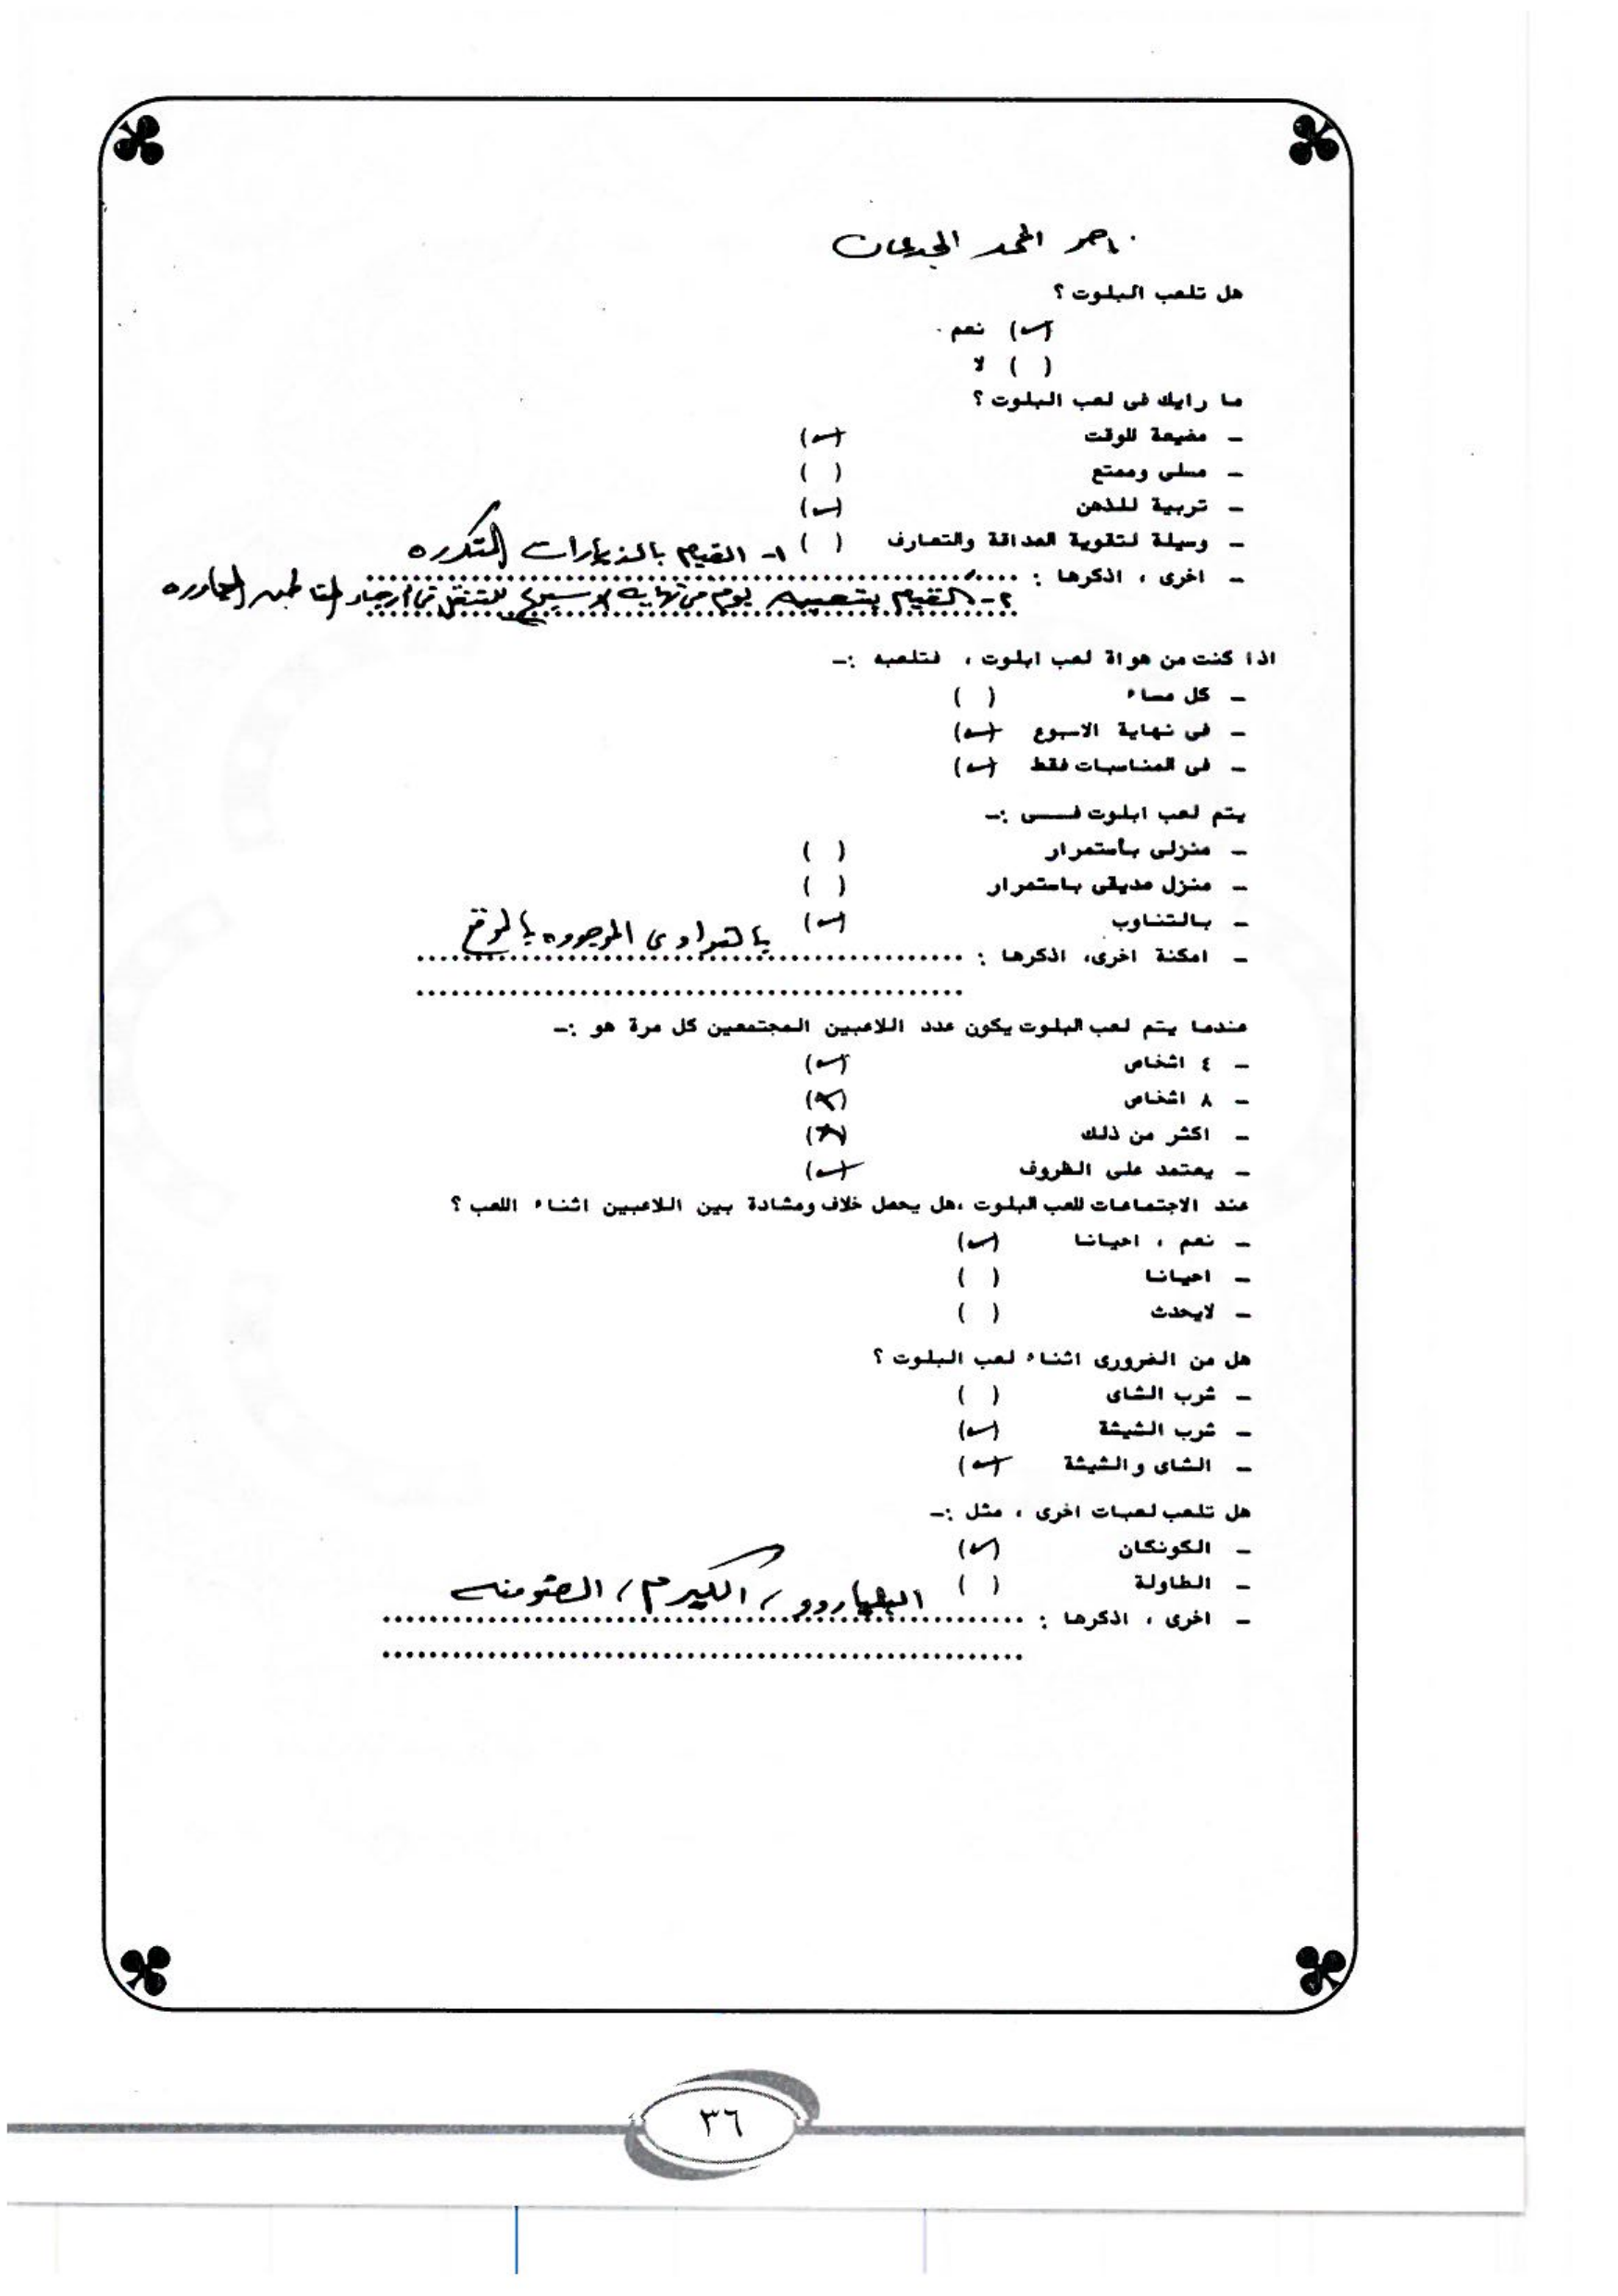 ناصر المحمد الجدعان
هل تلعب البلوت ؟
(✓) نعم
( ) لا
ما رايك فى لعب البلوت ؟
- مضيعة للوقت (✓)
- مسلى وممتع ( )
- تربية للذهن (✓)
- وسيلة لتقوية الصداقة والتعارف ( ) ١- القيام بالزيارات المتكرره
- اخرى ، اذكرها : ............
٢- القيام بتعبيه يوم من نهاية الاسبوع للتنقل فى أرجاء المناطق المجاوره
اذا كنت من هواة لعب ابلوت ، فتلعبه :-
- كل مساء ( )
- فى نهاية الاسبوع (✓)
- فى المناسبات فقط (✓)
يتم لعب ابلوت فـــى :-
- منزلى بأستمرار ( )
- منزل صديقى باستمرار ( )
- بالتناوب (✓)
بالنوادى الموجوده بالموقع
- امكنة اخرى، اذكرها : ............
............
عندما يتم لعب البلوت يكون عدد اللاعبين المجتمعين كل مرة هو :-
- ٤ اشخاص (✓)
- ٨ اشخاص (x)
- اكثر من ذلك (x)
- يعتمد على الظروف (✓)
عند الاجتماعات للعب البلوت ،هل يحصل خلاف ومشادة بين اللاعبين اثناء اللعب ؟
- نعم ، احيانا (✓)
- احيانا ( )
- لايحدث ( )
هل من الضرورى اثناء لعب البلوت ؟
- شرب الشاى ( )
- شرب الشيشة (✓)
- الشاى و الشيشة (✓)
هل تلعب لعبات اخرى ، مثل :-
- الكونكان (✓)
- الطاولة ( ) البلياردو / الكيرم / الضومنه
- اخرى ، اذكرها : ............
............
٣٦